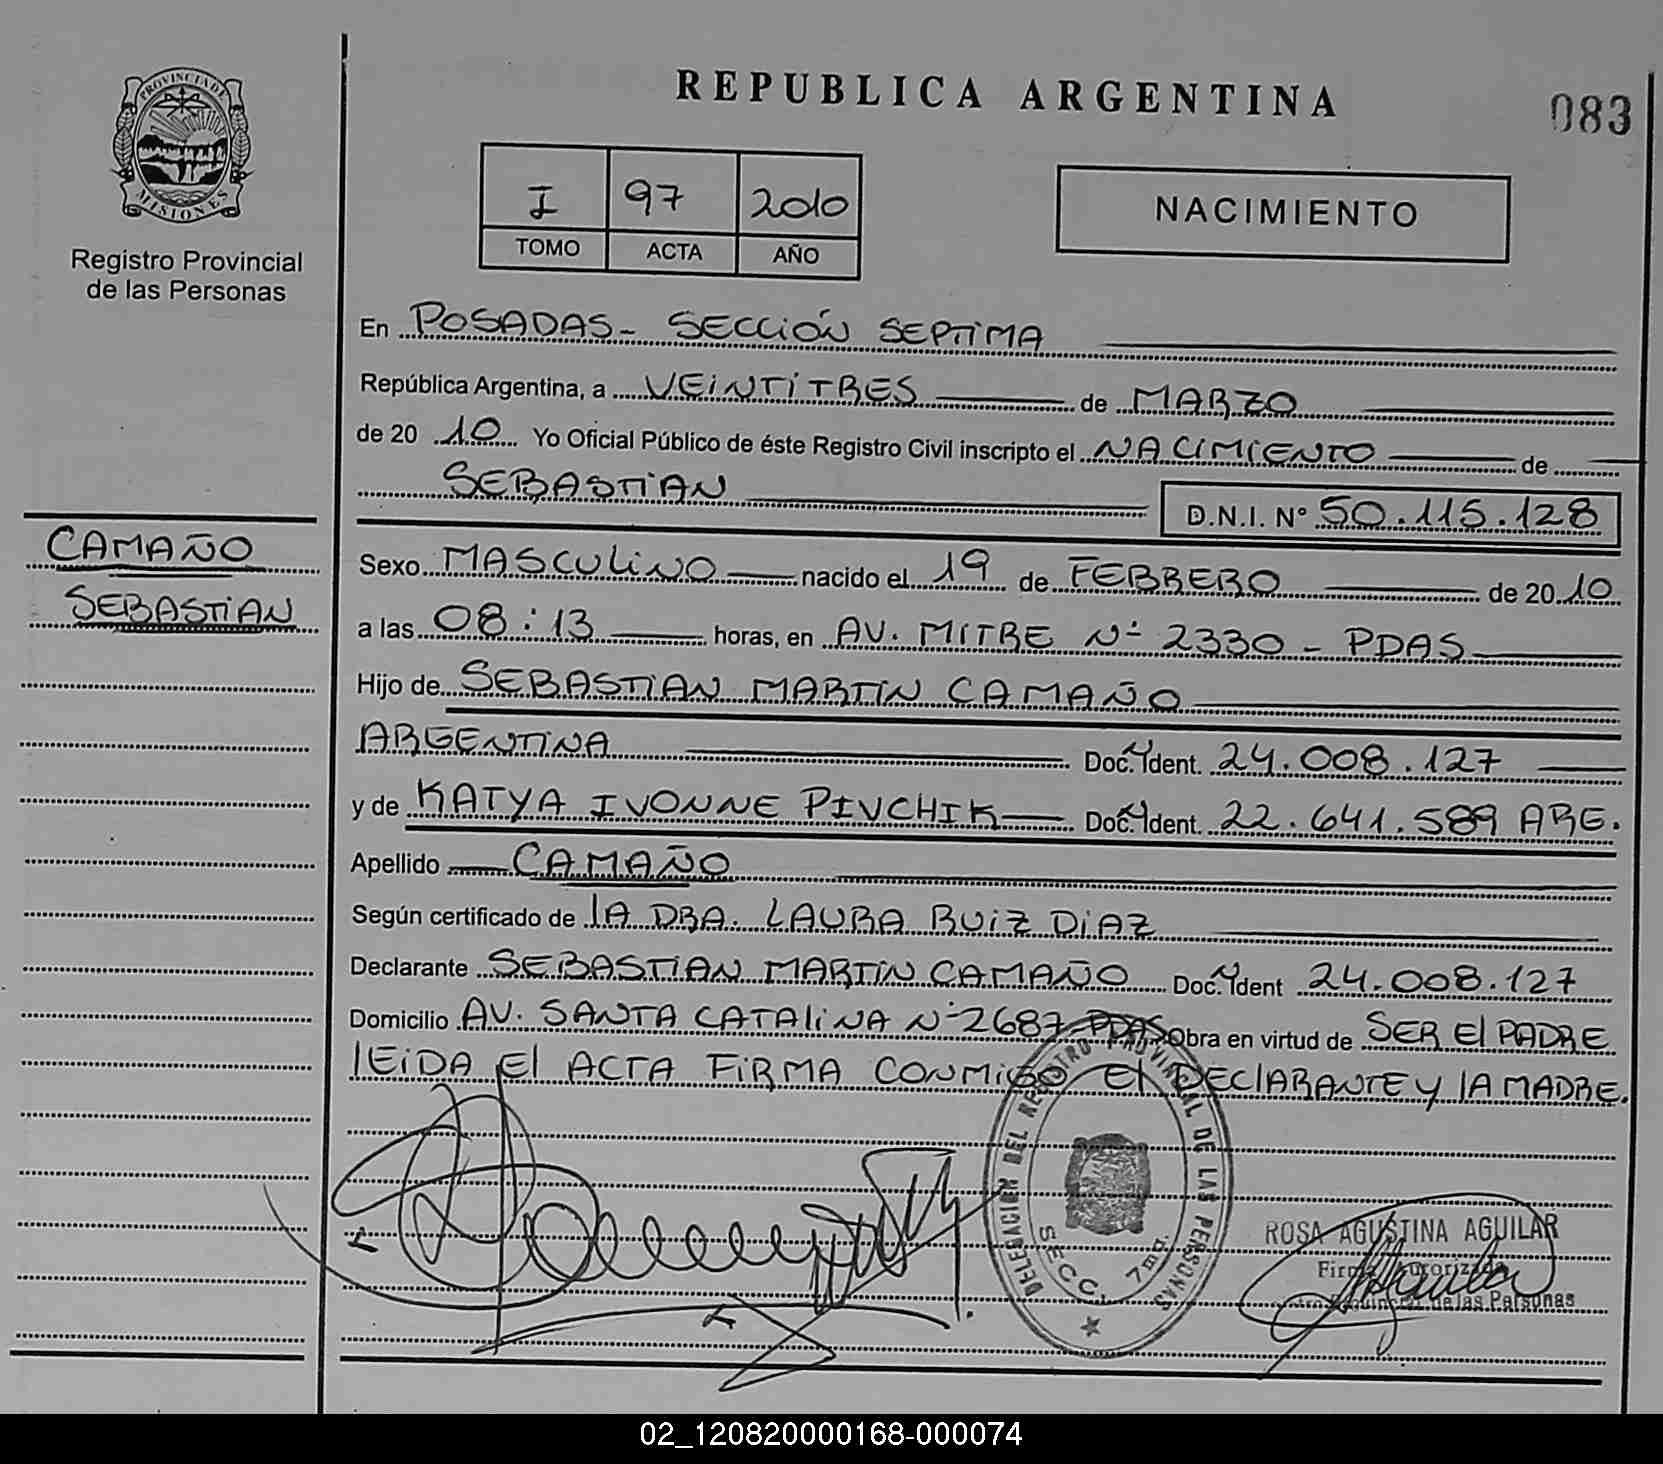 PROVINCIA DE
MISIONES
Registro Provincial
de las Personas
REPUBLICA ARGENTINA
083
I 97 2010
TOMO ACTA AÑO
NACIMIENTO
En POSADAS - SECCIÓN SEPTIMA
República Argentina, a VEINTITRES de MARZO
de 20 10 Yo Oficial Público de éste Registro Civil inscripto el NACIMIENTO de
SEBASTIAN D.N.I. N° 50.115.128
CAMAÑO
SEBASTIAN
Sexo MASCULINO nacido el 19 de FEBRERO de 20 10
a las 08:13 horas, en AV. MITRE Nº 2330 - PDAS
Hijo de SEBASTIAN MARTIN CAMAÑO
ARGENTINA Doc. Ident. 24.008.127
y de KATYA IVONNE PIVCHIK Doc. Ident. 22.641.589 ARG.
Apellido CAMAÑO
Según certificado de lA DRA. LAURA RUIZ DIAZ
Declarante SEBASTIAN MARTIN CAMAÑO Doc. Ident 24.008.127
Domicilio AV. SANTA CATALINA Nº 2687 PDAS Obra en virtud de SER El PADRE
lEIDA El ACTA FIRMA CONMIGO El DEClARANTE Y lA MADRE.
DELEGACION DEL REGISTRO PROVINCIAL DE LAS PERSONAS
SECC. 7ma.
ROSA AGUSTINA AGUILAR
Firma Autorizada
de las Personas
02_120820000168-000074